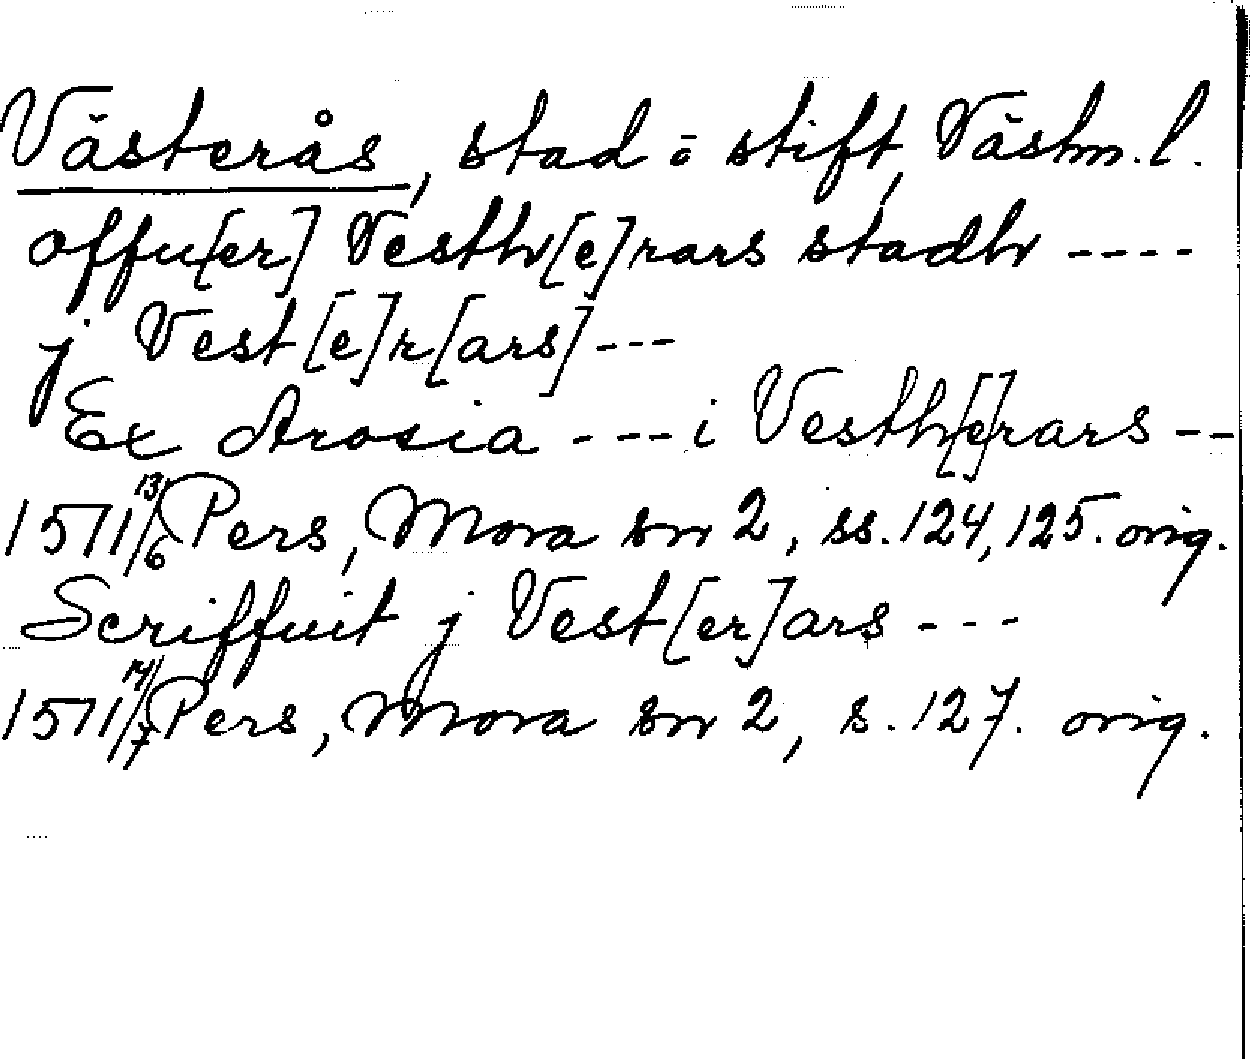 Västerås, stad o stift, Västm. l.
offu[er] Vesth[e]rars stadh ----
j Vest[e]r[ars] ---
Ex Arosia --- i Vesth[e]rars --
1571 13/6 Pers, Mora sn 2, ss. 124, 125. orig.
Scriffuit j Vest[er]ars ---
1571 14/7 Pers, Mora sn 2, s. 127. orig.